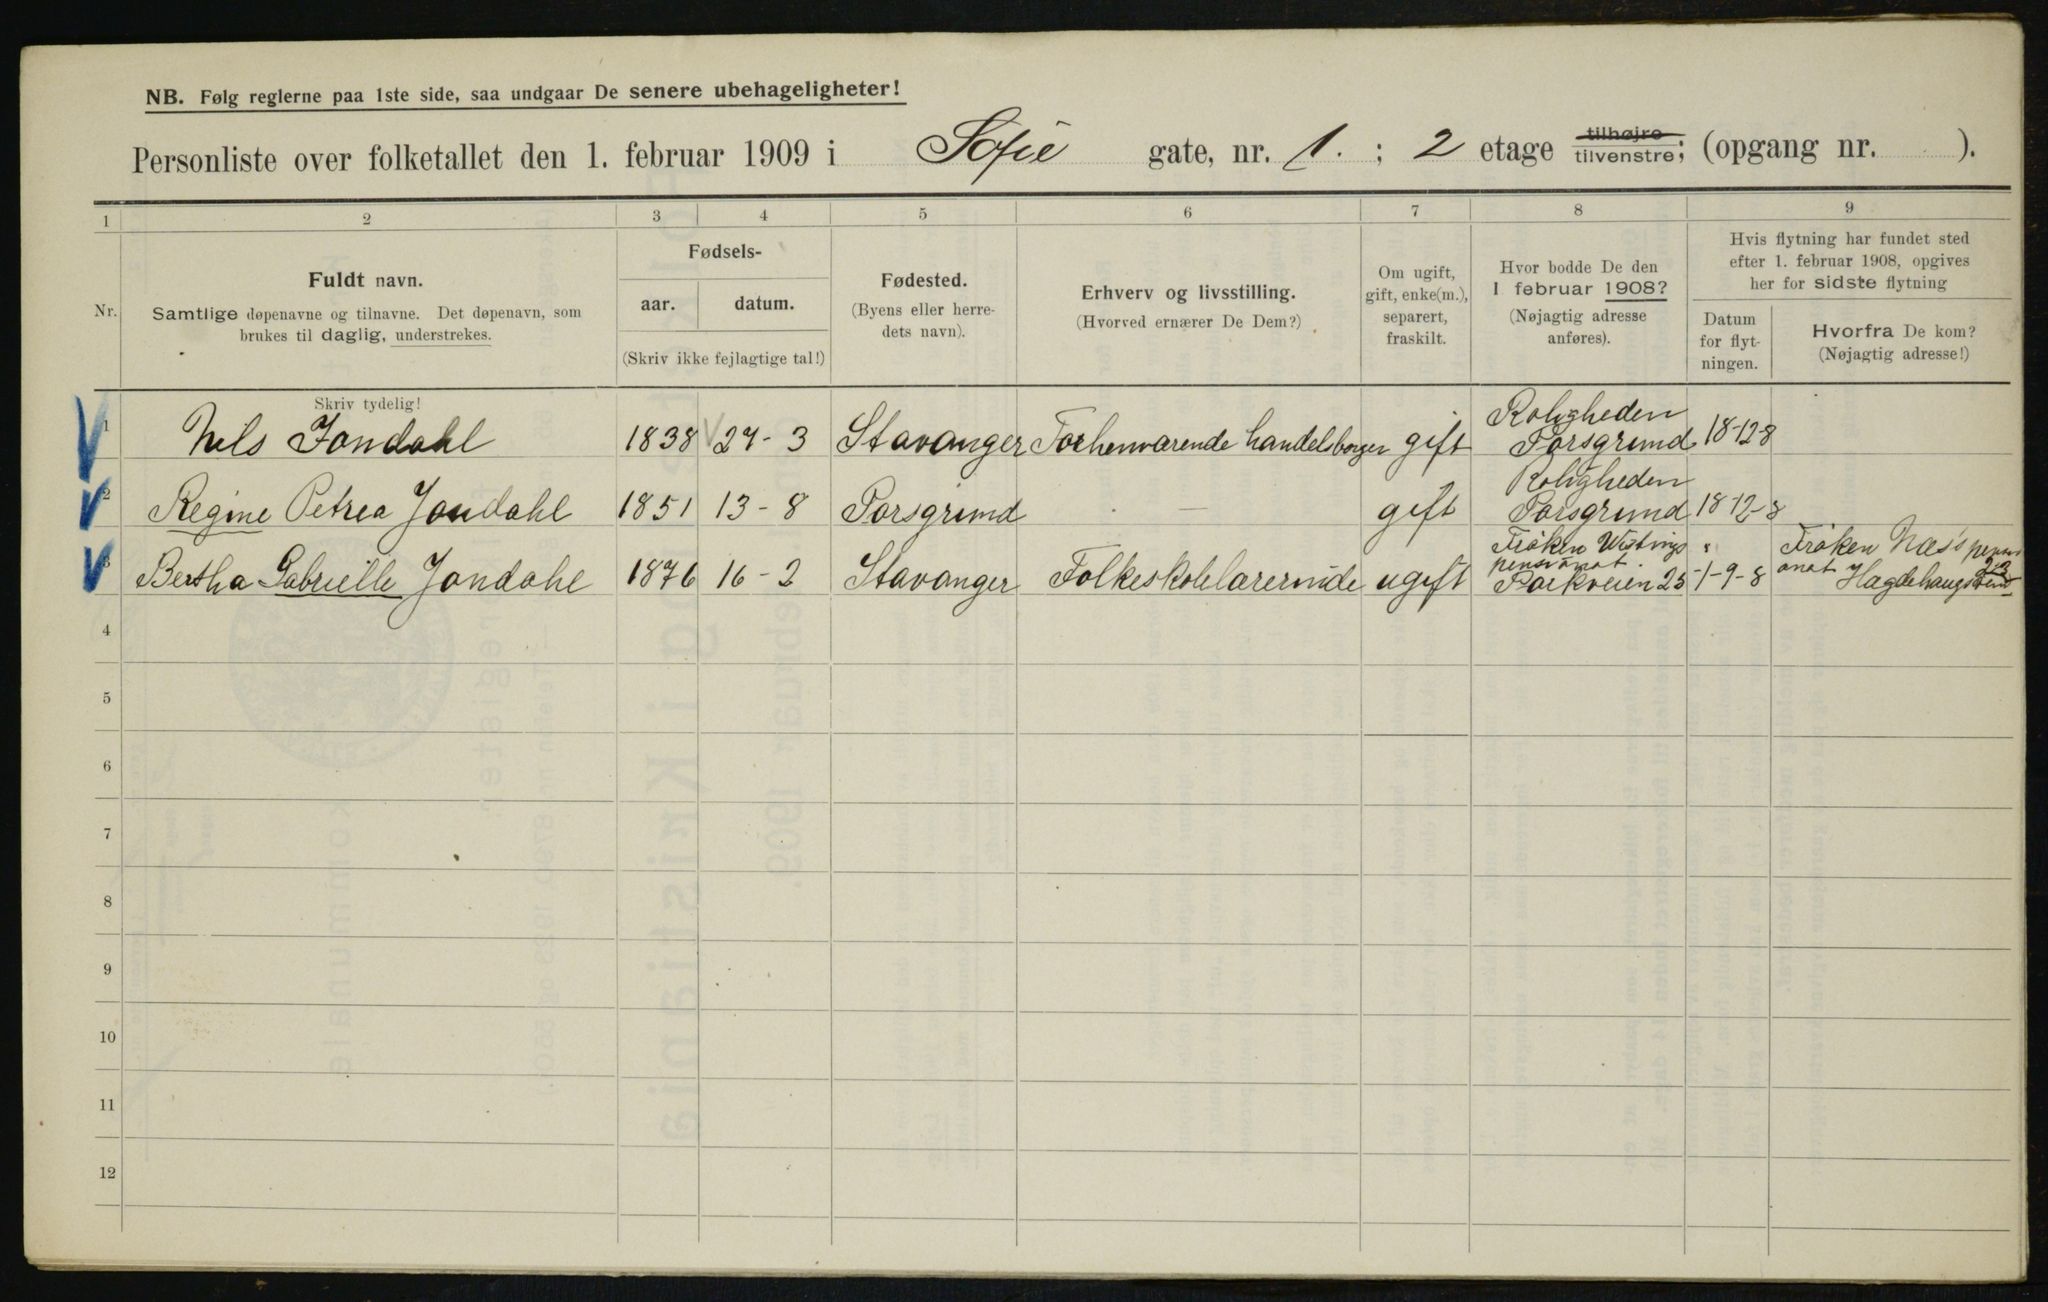 NB. Følg reglerne paa 1ste side, saa undgaar De senere ubehageligheter!
Personliste over folketallet den 1. februar 1909 i Sofie gate, nr. 1. ; 2 etage tilhøjre tilvenstre; (opgang nr. ).
1 2 3 4 5 6 7 8 9
Nr.
Fuldt navn.
Samtlige døpenavne og tilnavne. Det døpenavn, som
brukes til daglig, understrekes.
Fødsels-
aar. datum.
(Skriv ikke fejlagtige tal!)
Fødested.
(Byens eller herre-
dets navn).
Erhverv og livsstilling.
(Hvorved ernærer De Dem?)
Om ugift,
gift, enke(m.),
separert,
fraskilt.
Hvor bodde De den
1 februar 1908?
(Nøjagtig adresse
anføres).
Hvis flytning har fundet sted
efter 1. februar 1908, opgives
her for sidste flytning
Datum
for flyt-
ningen.
Hvorfra De kom?
(Nøjagtig adresse!)
Skriv tydelig!
1 Nils Jondahl 1838 27-3 Stavanger Forhenværende handelsborger gift Roligheden Porsgrund 18-12-8
2 Regine Petrea Jondahl 1851 13-8 Porsgrund — gift Roligheden Porsgrund 18-12-8
3 Bertha Gabrielle Jondahl 1876 16-2 Stavanger Folkeskolelærerinde ugift Frøken Wistings pensionat Parkveien 25 1-9-8 Frøken Næs's pensionat Hægdehaugsveien 23
4
5
6
7
8
9
10
11
12